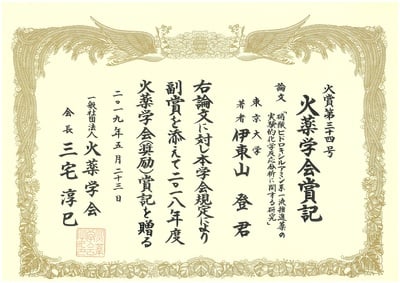 火賞第三十四号
火薬学会賞記
論文 硝酸ヒドロキシルアミン系一液推進薬の
実験的化学反応解析に関する研究
東京大学
著者 伊東山 登 君
右論文に対し本学会規定により
副賞を添えて二〇一八年度
火薬学会(奨励)賞記を贈る
二〇一九年五月二十三日
一般社団法人 火薬学会
会長 三宅淳巳